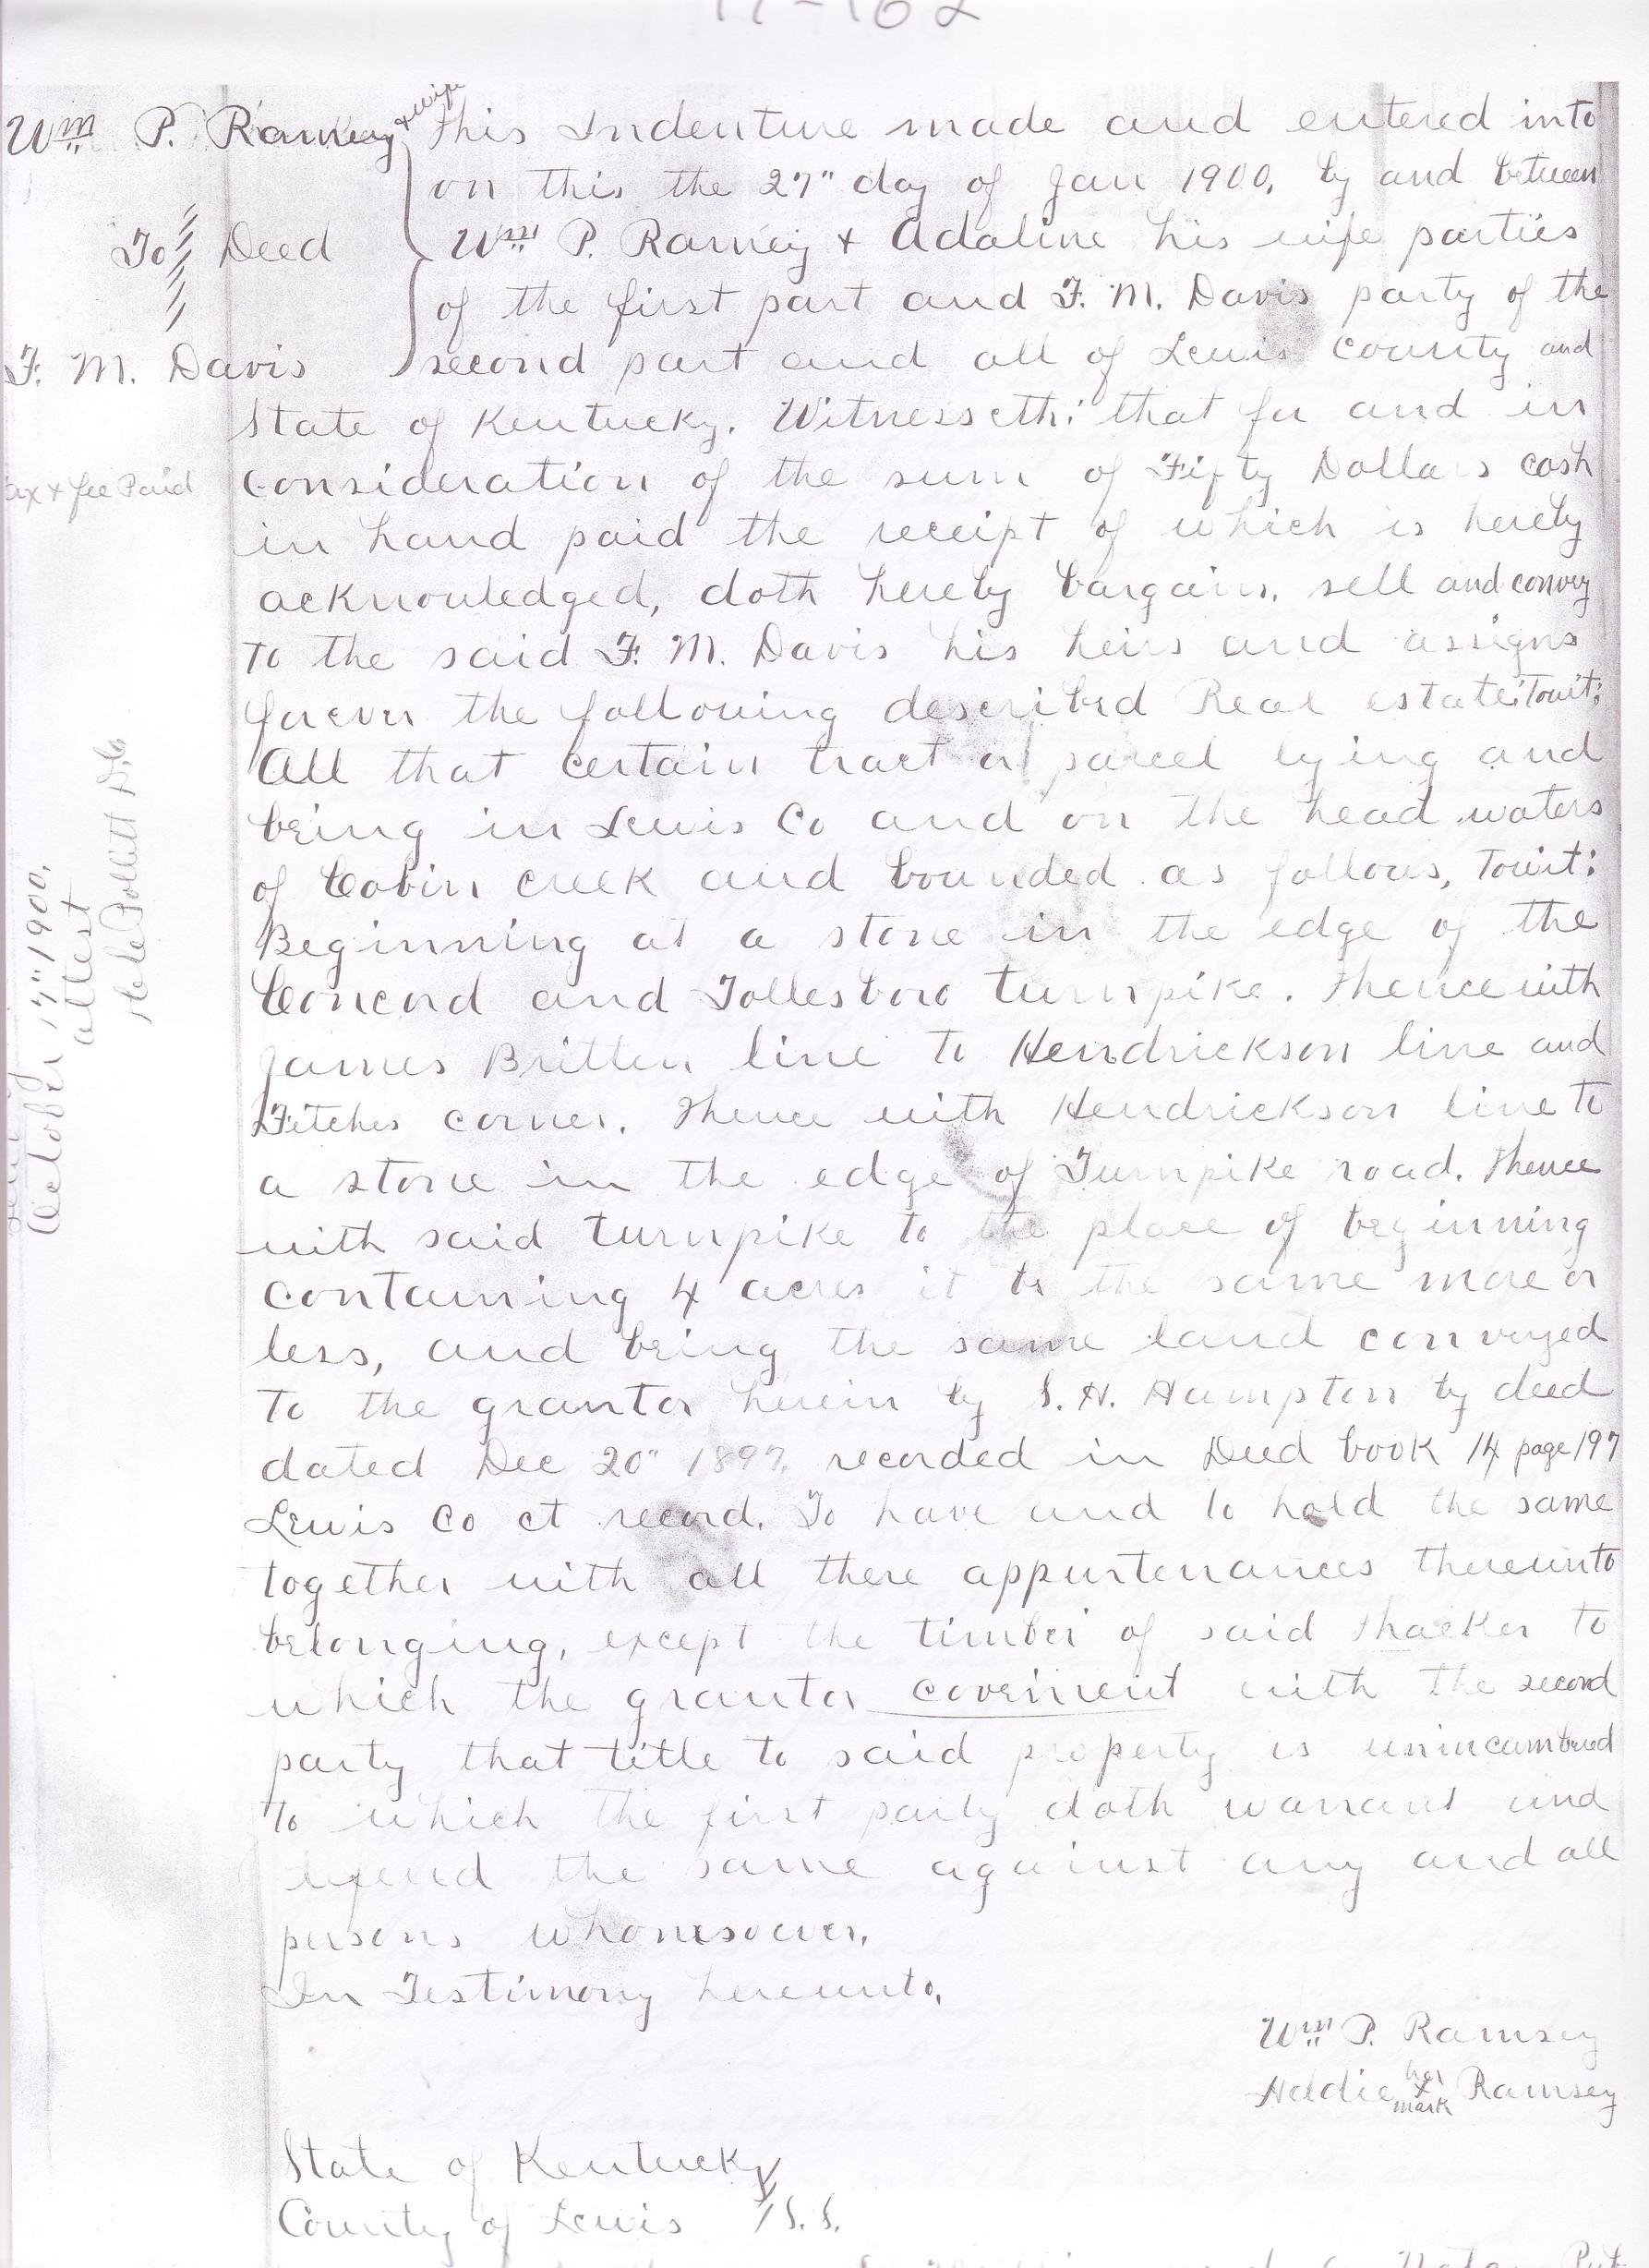 17-162
Wm P. Ramey & wife
To Deed
F. M. Davis
Tax & fee Paid
October 17" 1900.
attest
Pollitt D.C.
This Indenture made and entered into
on this the 27" day of Jan 1900, by and between
Wm P. Ramey & Adaline his wife parties
of the first part and F. M. Davis party of the
second part and all of Lewis County and
State of Kentucky. Witnesseth: that for and in
consideration of the sum of Fifty Dollars cash
in hand paid the receipt of which is hereby
acknowledged, doth hereby bargain, sell and convey
to the said F. M. Davis his heirs and assigns
forever the following described Real estate: Towit:
All that certain tract or parcel lying and
being in Lewis Co and on the head waters
of Cabin creek and bounded as follows, Towit:
Beginning at a stone in the edge of the
Concord and Tollesboro turnpike. Thence with
James Britten line to Hendrickson line and
Fitches corner. Thence with Hendrickson line to
a stone in the edge of Turnpike road. Thence
with said turnpike to the place of beginning
containing 4 acres it be the same more or
less, and being the same land conveyed
to the grantor herein by S. H. Hampton by deed
dated Dec 20" 1897, recorded in Deed book 14 page 197
Lewis Co ct record. To have and to hold the same
together with all there appurtenances thereunto
belonging, except the timber of said thacker to
which the grantor covenient with the second
party that title to said property is unincumbred
To which the first party doth warrant and
defend the same against any and all
persons whomesoever.
In Testimony hereunto,
Wm P. Ramsey
Addie her x mark Ramsey
State of Kentucky
County of Lewis S.S.